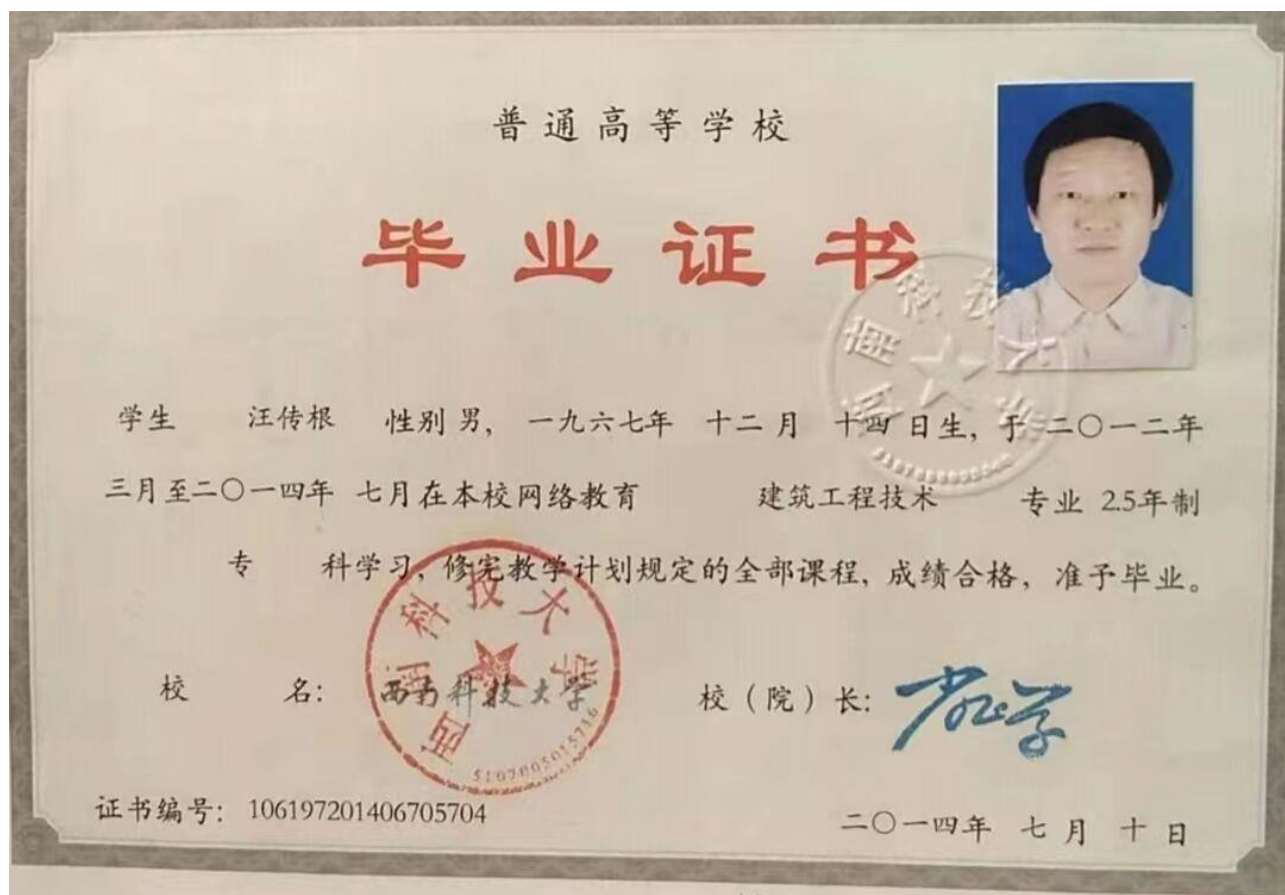 普通高等学校
毕业证书
学生 汪传根 性别 男, 一九六七年 十二月 十四日生, 于二〇一二年
三月至二〇一四年 七月在本校网络教育 建筑工程技术 专业 2.5年制
专 科学习, 修完教学计划规定的全部课程, 成绩合格, 准予毕业。
校 名: 西南科技大学
校(院)长:
西南科技大学
5107005015716
证书编号: 106197201406705704
二〇一四年 七月 十日
西南科技大学